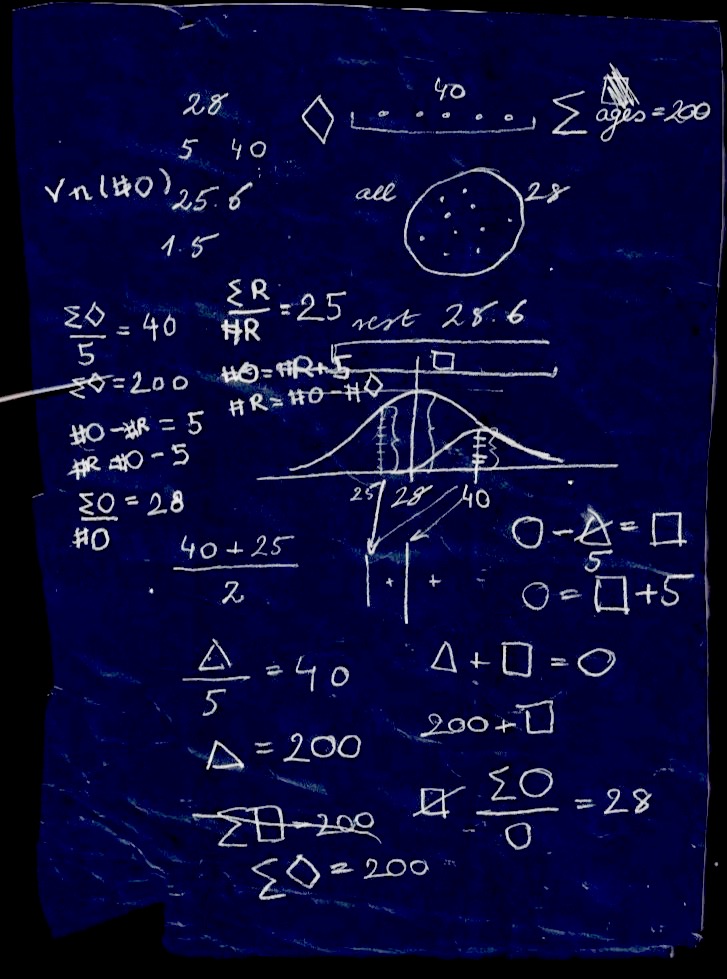 28
5 40
25.6
1.5
√n(#O)
◇ 40
∑ ages = 200
all 28
∑◇/5 = 40
∑◇ = 200
#O - #R = 5
#R #O - 5
∑O/#O = 28
∑R/#R = 25
#O = #R + 5
#R = #O - #◇
rest 28.6
□
25 28 40
40 + 25
2
+ +
O - △/5 = □
O = □ + 5
△/5 = 40
△ = 200
∑□ = 200
∑◇ = 200
△ + □ = O
200 + □
∑O/O = 28